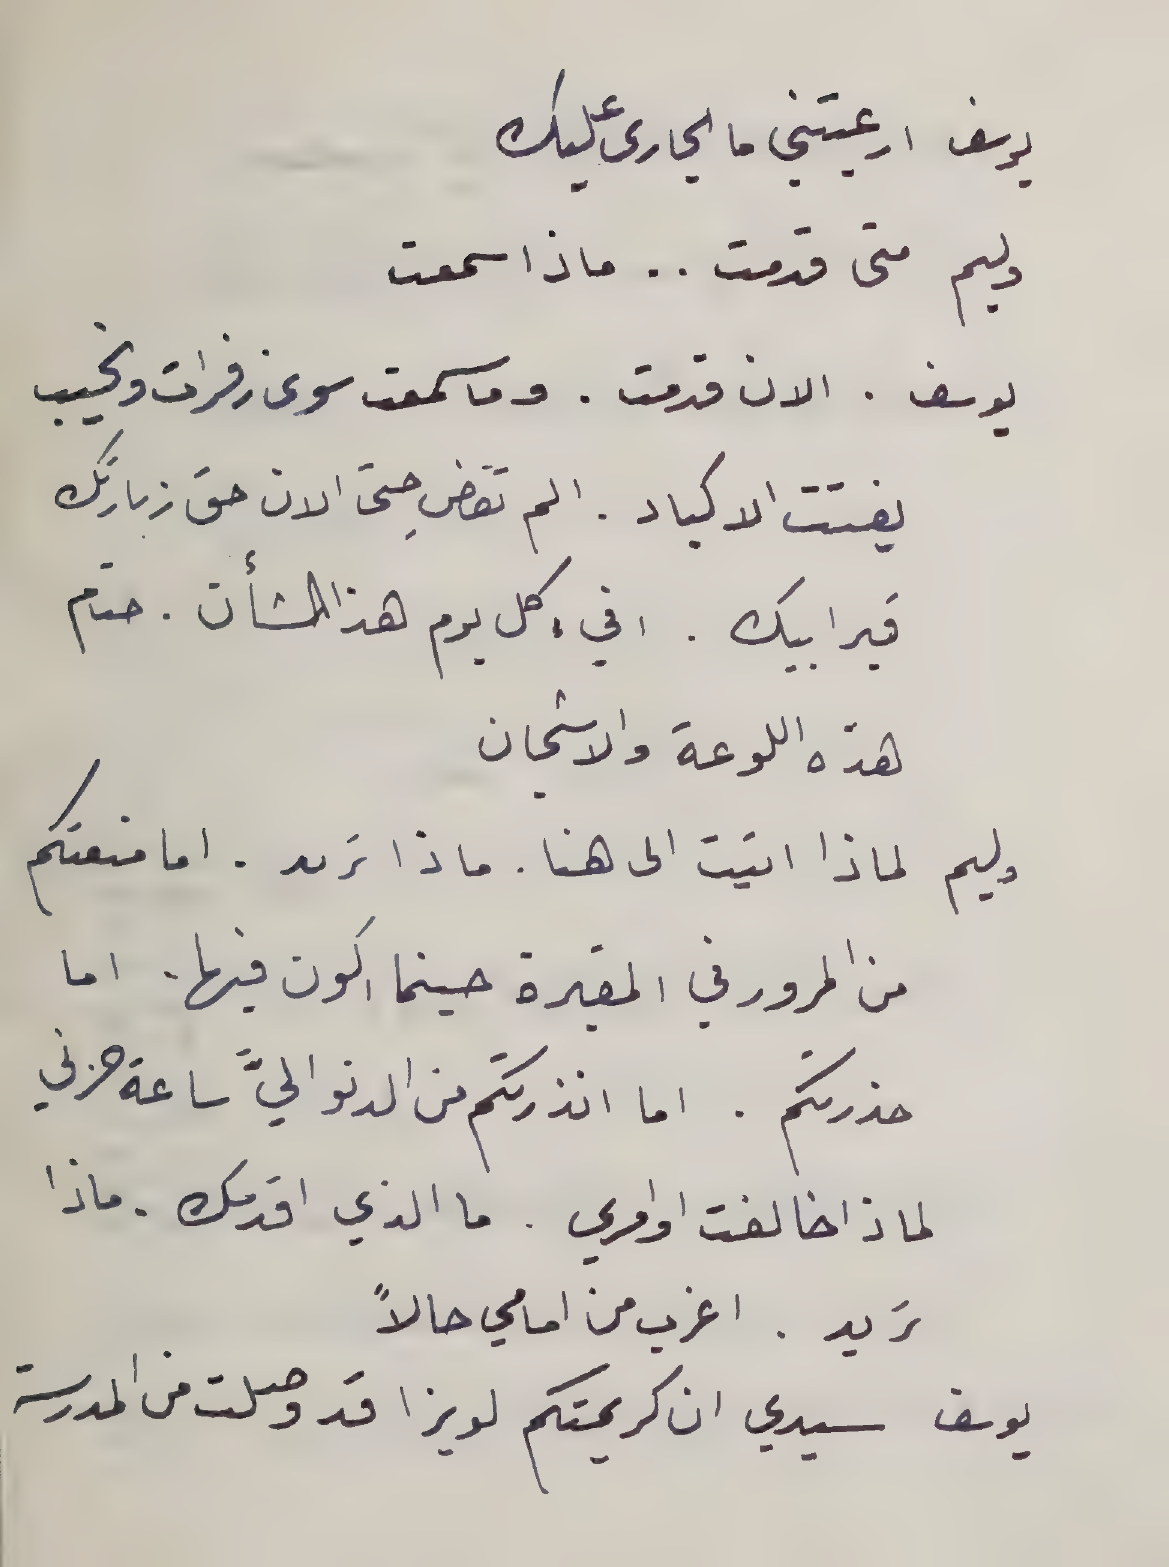 يوسف ارعبتني ما الجارى عليك
وليم متى قدمت .. ماذا سمعت
يوسف . الان قدمت . وما سمعت سوى زفرات ونحيب
يفتت الاكباد . الم تقضِ حتى الان حق زيارتك
قبر ابيك . افي كل يوم هذا الشأن . حتام
هذه اللوعة والاشجان
وليم لماذا اتيت الى هنا . ماذا تريد . اما منعتكم
من المرور في المقبرة حينما اكون فيها . اما
حذرتكم . اما انذرتكم من الدنو اليَّ ساعة حزني
لماذا خالفت اوامري . ما الذي اقدمك . ماذا
تريد . اغرب من امامي حالاً
يوسف سيدي ان كريمتكم لويزا قد وصلت من المدرسة